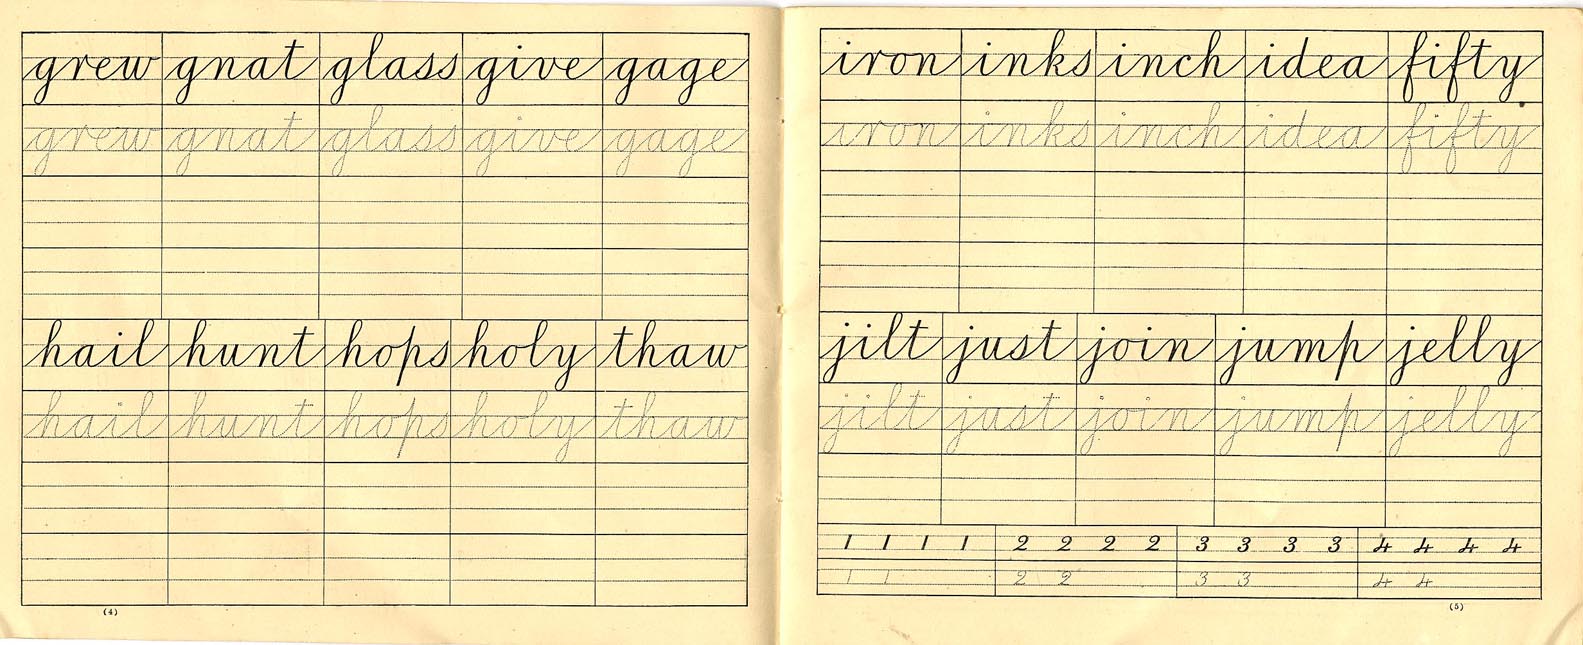 grew gnat glass give gage
grew gnat glass give gage
hail hunt hops holy thaw
hail hunt hops holy thaw
(4)
iron inks inch idea fifty
iron inks inch idea fifty
jilt just join jump jelly
jilt just join jump jelly
1 1 1 1 2 2 2 2 3 3 3 3 4 4 4 4
1 1 2 2 3 3 4 4
(5)